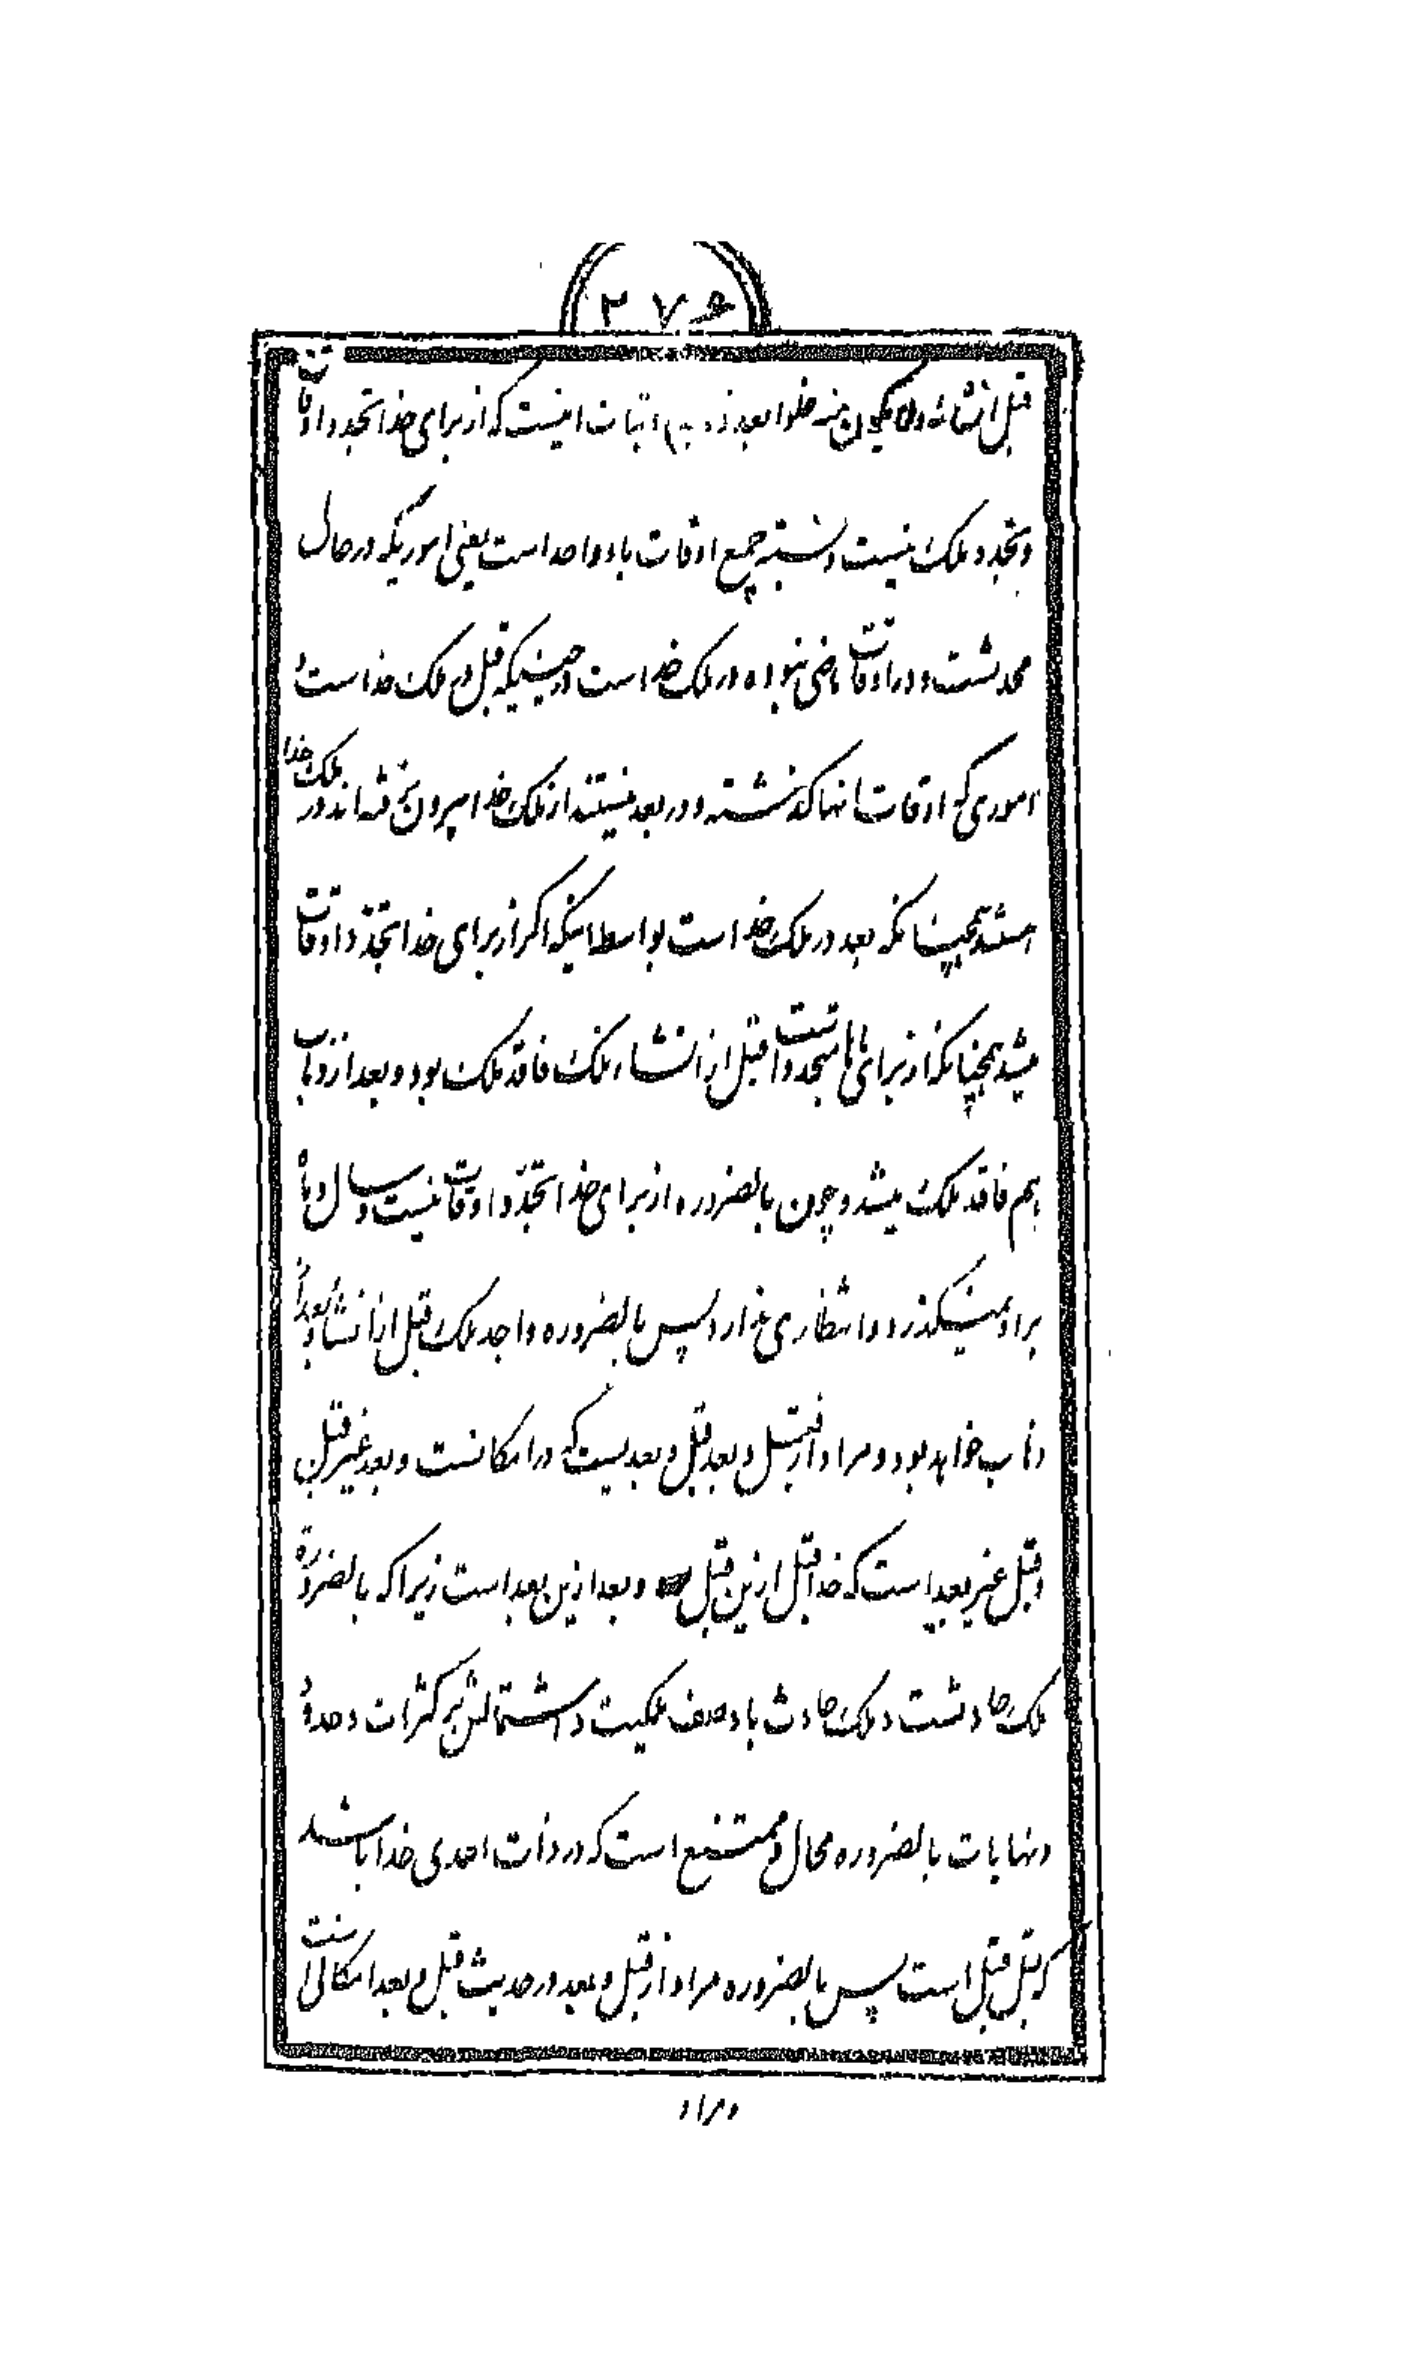 ۲۷۶
قبل انشائه ولا یکون منه خلوا بعد ذهابه اثبات اینست که از برای خدا تجدد اوقات
و تجدد ملک نیست و نسبته جمیع اوقات باو واحد است یعنی اموریکه در حال
محدثست و در اوقات ماضی نبوده در ملک خدا است در حینیکه قبل در ملک خدا است و
اموری که اوقات انها کذشته و در بعد نیستند از ملک خدا بیرون نرفته اند در ملک خدا
هستند همچنانکه بعد در ملک خدا است بواسطه اینکه اکر از برای خدا تجدد اوقات
میشد همچنانکه از برای ما متجدد است قبل از انشاء ملک فاقد ملک بود و بعد از ذهاب
هم فاقد ملک میشد و چون بالضروره از برای خدا تجدد اوقات نیست و سال و ماه
بر او نمیکذرد و انتظاری ندارد پس بالضروره واجد ملک قبل از انشاء و بعد از
ذهاب خواهد بود و مراد از قبل و بعد قبل و بعدیست که در امکانست و بعد غیر قبل
و قبل غیر بعد است که خدا قبل ازین قبل و بعد ازین بعد است زیرا که بالضروره
ملک حادثست و ملک حادث با وصف ملکیت و اشتمالش بر کثرات و حدود
و نهایات بالضروره محال و ممتنع است که در ذات احدی خدا باشد
که قبل قبل است پس بالضروره مراد از قبل و بعد در حدیث قبل و بعد امکانی است
و مراد